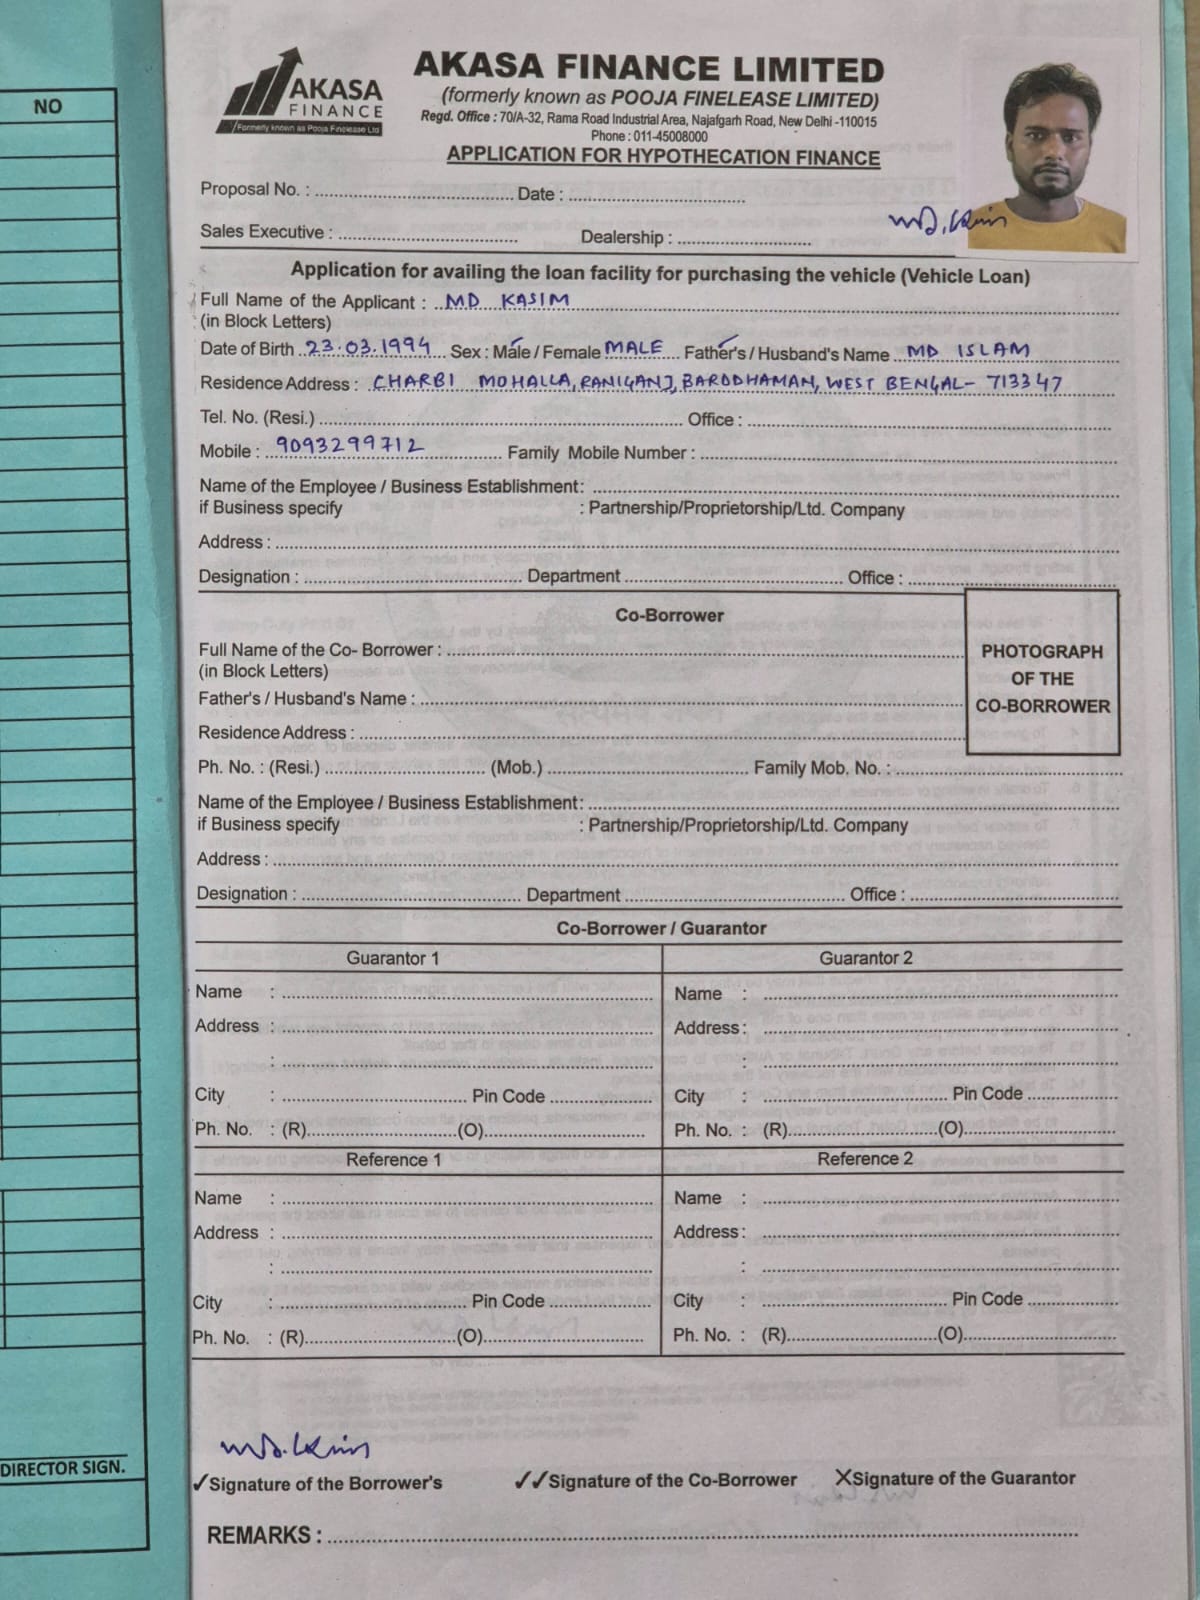 NO
AKASA
FINANCE
Formerly known as Pooja Finelease Ltd
AKASA FINANCE LIMITED
(formerly known as POOJA FINELEASE LIMITED)
Regd. Office : 70/A-32, Rama Road Industrial Area, Najafgarh Road, New Delhi -110015
Phone : 011-45008000
APPLICATION FOR HYPOTHECATION FINANCE
Proposal No. : Date :
Sales Executive : Dealership :
Application for availing the loan facility for purchasing the vehicle (Vehicle Loan)
Full Name of the Applicant : MD KASIM
(in Block Letters)
Date of Birth 23.03.1994 Sex : Male / Female MALE Father's / Husband's Name MD ISLAM
Residence Address : CHARBI MOHALLA, RANIGANJ, BARDDHAMAN, WEST BENGAL- 713347
Tel. No. (Resi.) Office :
Mobile : 9093299712 Family Mobile Number :
Name of the Employee / Business Establishment:
if Business specify : Partnership/Proprietorship/Ltd. Company
Address :
Designation : Department Office :
Co-Borrower
Full Name of the Co- Borrower :
(in Block Letters)
Father's / Husband's Name :
Residence Address :
PHOTOGRAPH
OF THE
CO-BORROWER
Ph. No. : (Resi.) (Mob.) Family Mob. No. :
Name of the Employee / Business Establishment:
if Business specify : Partnership/Proprietorship/Ltd. Company
Address :
Designation : Department Office :
Co-Borrower / Guarantor
Guarantor 1 Guarantor 2
Name : Name :
Address : Address :
: :
City : Pin Code City : Pin Code
Ph. No. : (R) (O) Ph. No. : (R) (O)
Reference 1 Reference 2
Name : Name :
Address : Address :
: :
City : Pin Code City : Pin Code
Ph. No. : (R) (O) Ph. No. : (R) (O)
DIRECTOR SIGN.
✓Signature of the Borrower's ✓✓Signature of the Co-Borrower XSignature of the Guarantor
REMARKS :